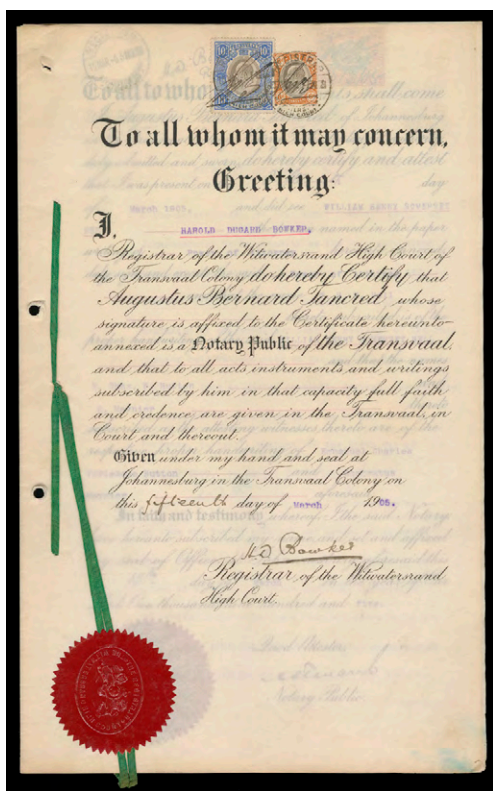 To all whom it may concern,
Greeting:
I,
HAROLD DUGARD BOWKER,
Registrar of the Witwatersrand High Court of
the Transvaal Colony do hereby Certify that
Augustus Bernard Tancred whose
signature is affixed to the Certificate hereunto
annexed is a Notary Public of the Transvaal,
and that to all acts instruments and writings
subscribed by him in that capacity full faith
and credence are given in the Transvaal, in
Court and thereout.
Given under my hand and seal at
Johannesburg in the Transvaal Colony on
this fifteenth day of March 1905.
H D Bowker
Registrar of the Witwatersrand
High Court.